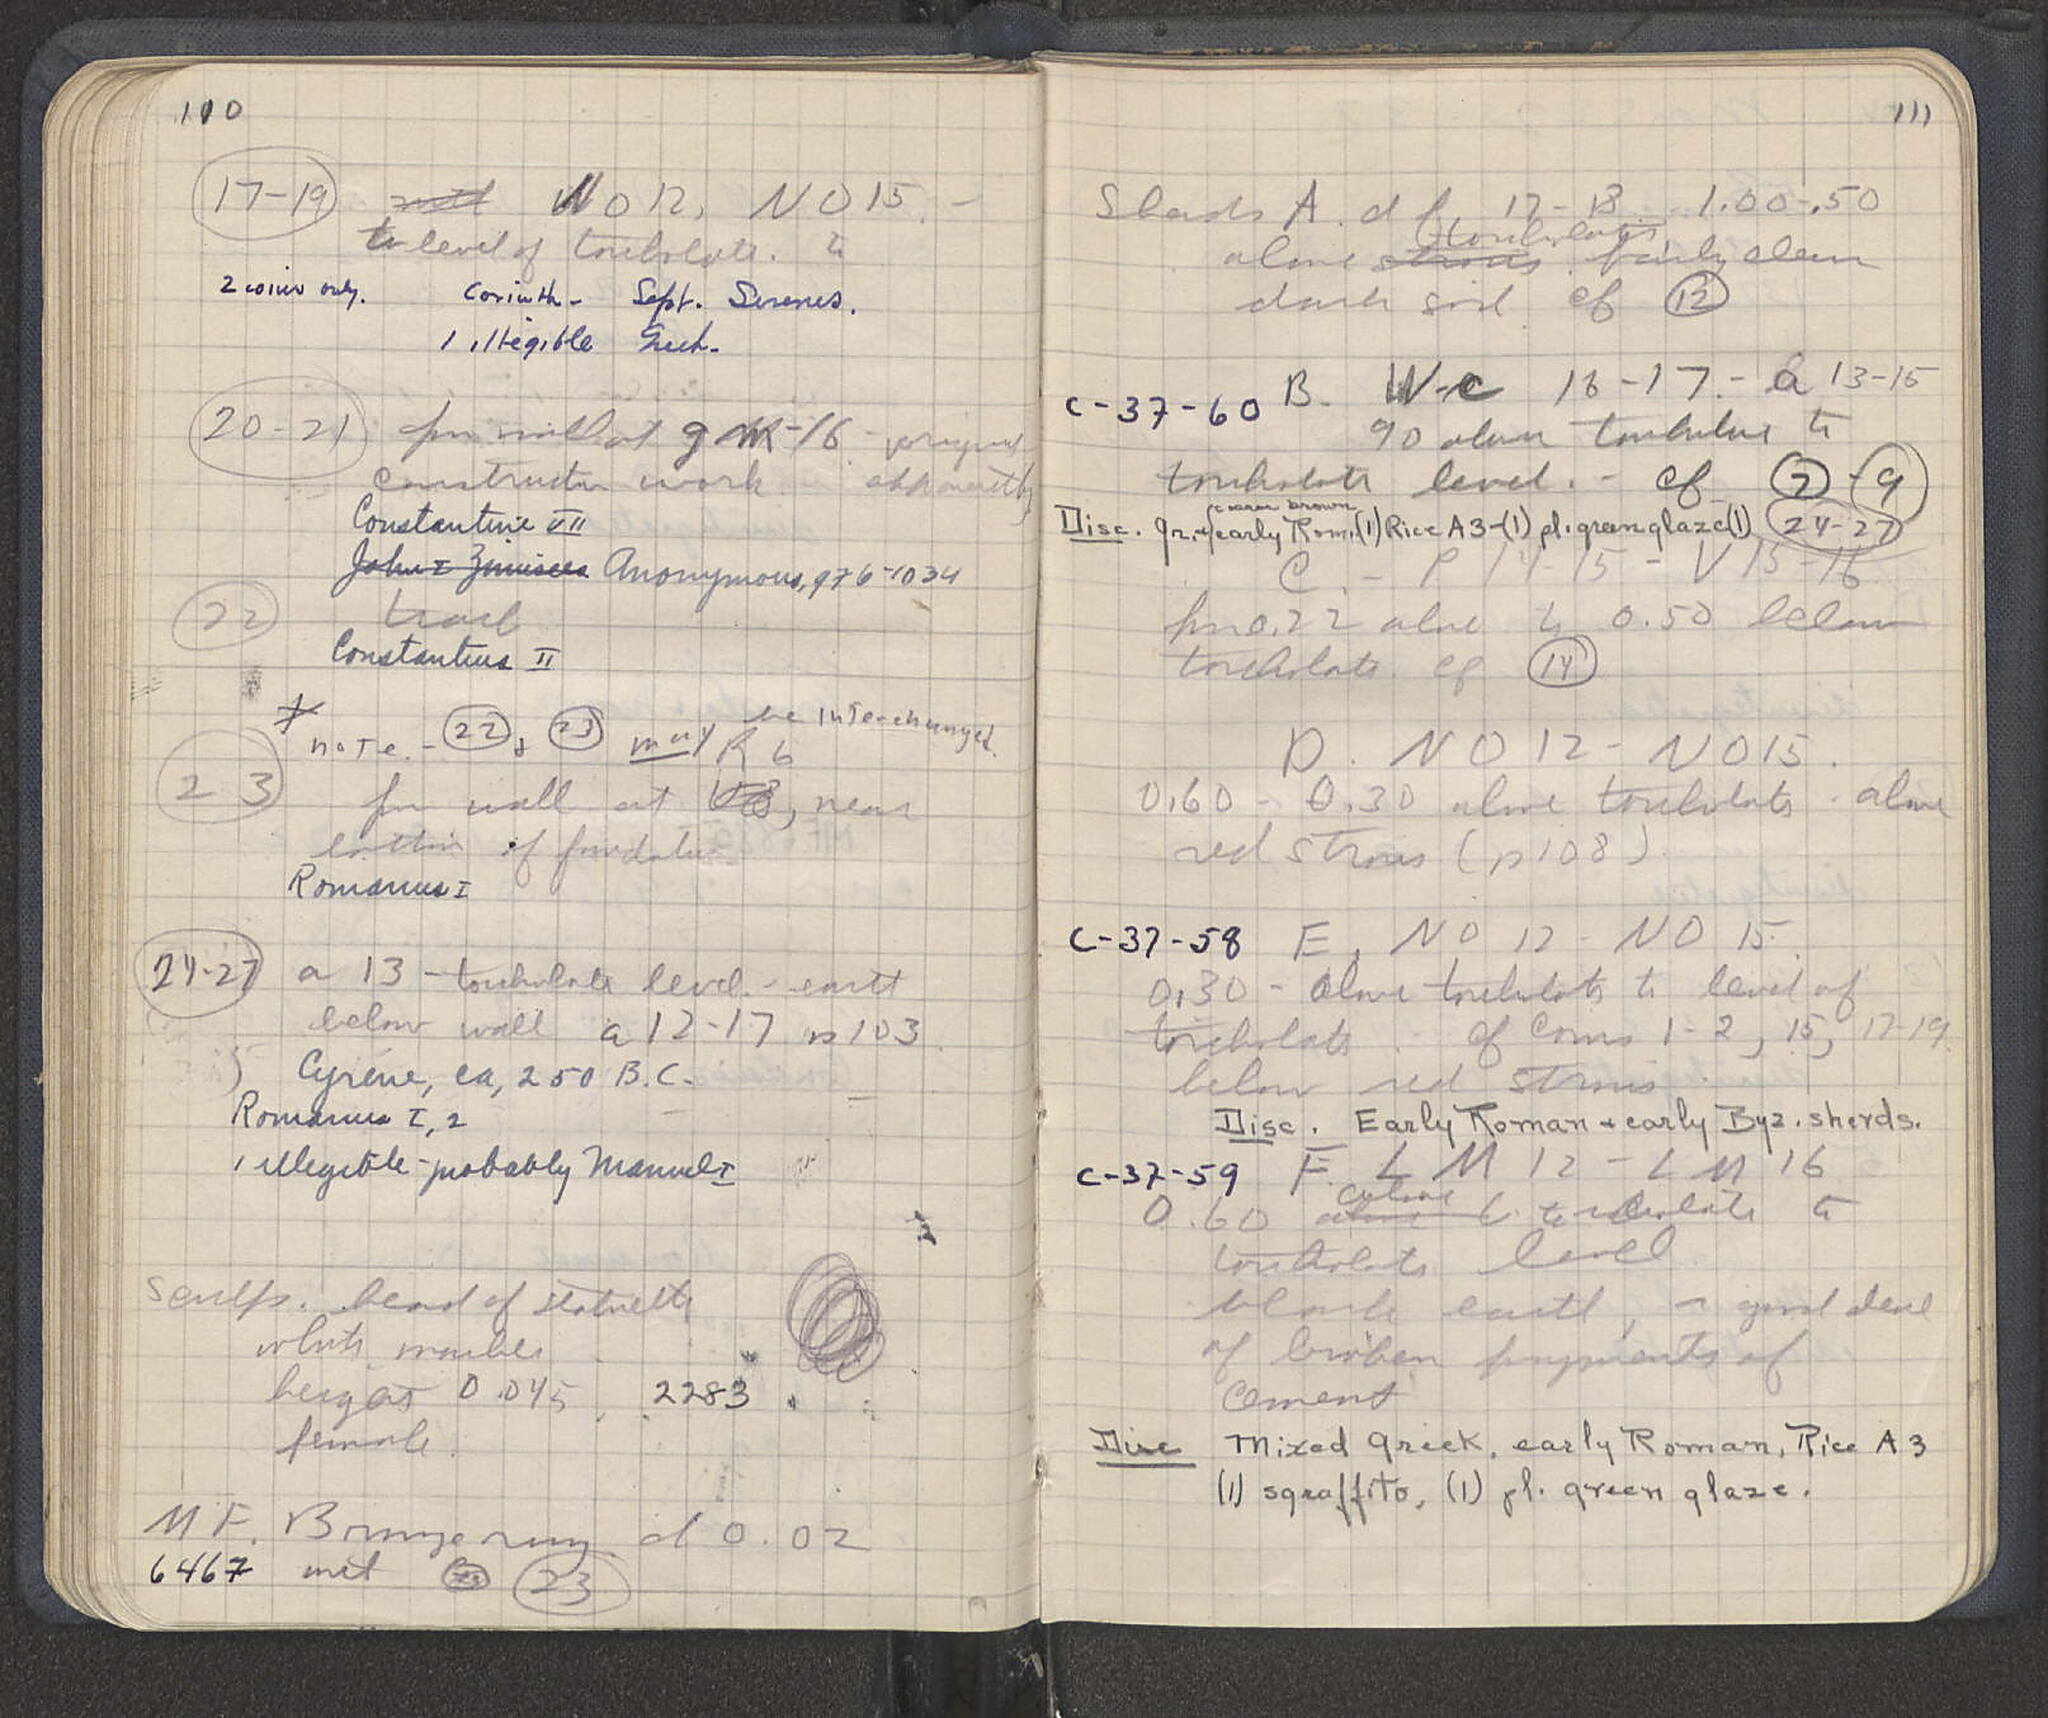 110
17-19 NO12, NO15. -
to level of toichobate. to
2 coins only. Corinth - Sept. Severus.
1 illegible Greek.
20-21 from wall at g -16 - original
construction work apparently
Constantine VII
John I Zimisces Anonymous, 976-1034
22
Constantius II
note. - 22 + 23 may be interchanged.
R 6
23 from wall at , near
bottom of foundation
Romanus I
24-27 a 13 - toichobate level. - earth
below wall a 12-17 p 103
Cyrene, ca, 250 B.C.
Romanus I, 2
1 illegible - probably Manuel I
Sculp. head of statuette
white marble
height 0.045, 2283
female.
M F. Bronze ring d 0.02
6467 met 23
111
Sherds A. d f 17-18 1.00-.50
toichobate
above stroses fairly clean
dark soil cf 12
C-37-60 B. W-c 16-17 - a 13-15
90 above toichobate to
toichobate level. - cf 7-9
coarse brown
Disc. gr. + early Rom. (1) Rice A3-(1) pl. green glaze (1) 24-27
C. - P 14-15 - V 15-16
from 0.22 above to 0.50 below
toichobate cf 14
D. NO 12 - NO15.
0.60 - 0.30 above toichobate - above
red stroses (p 108)
C-37-58 E. NO 12 - NO 15.
0.30 - above toichobate to level of
toichobate. cf Coins 1-2, 15, 17-19
below red stroses
Disc. Early Roman + early Byz. sherds.
C-37-59 F. L M 12 - L M 16
0.60 above toichobate to
toichobate level
black earth, a good deal
of broken fragments of
cement
Disc Mixed Greek, early Roman, Rice A 3
(1) sgraffito, (1) pl. green glaze.